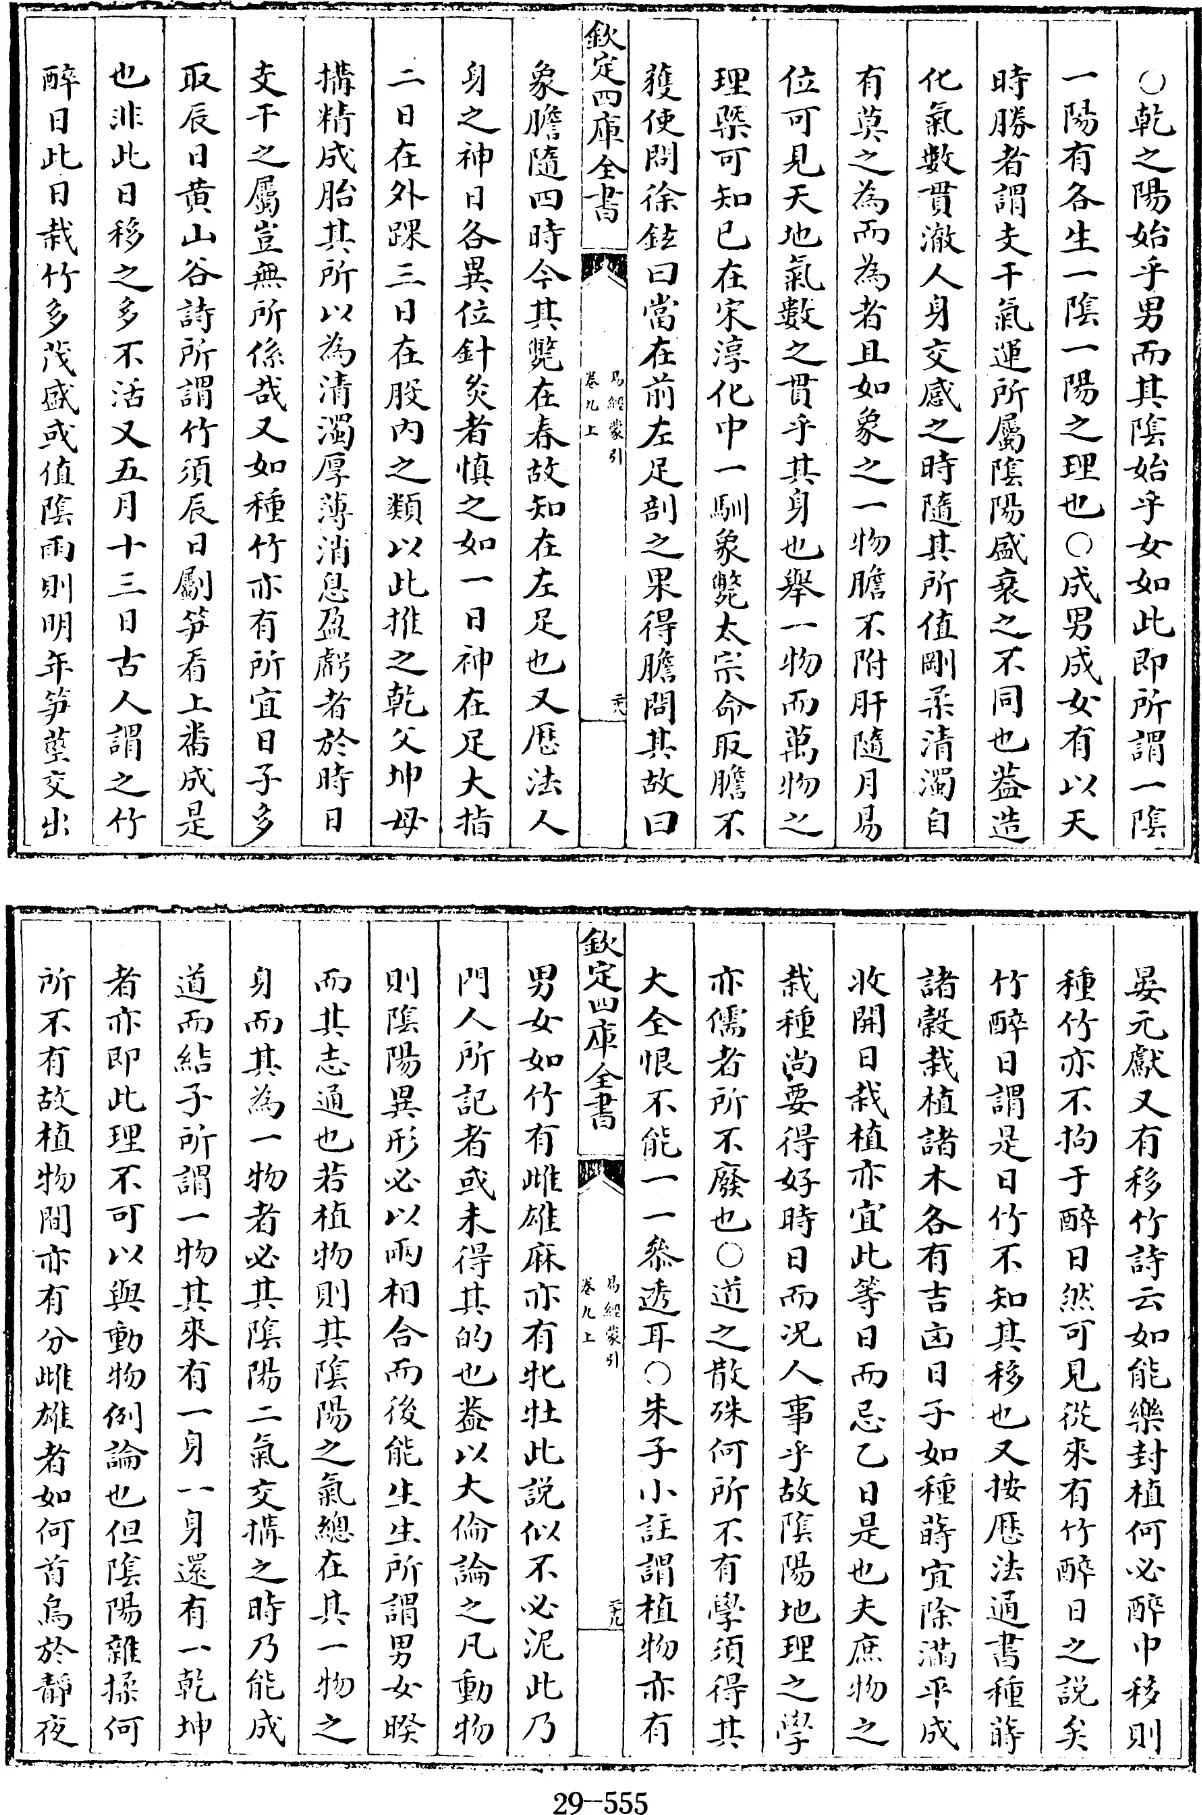 ○乾之陽始乎男而其陰始乎女如此即所謂一陰
一陽有各生一陰一陽之理也○成男成女有以天
時勝者謂支干氣運所屬陰陽盛衰之不同也葢造
化氣數貫澈人身交感之時隨其所值剛柔清濁自
有莫之為而為者且如象之一物膽不附肝隨月易
位可見天地氣數之貫乎其身也舉一物而萬物之
理槩可知已在宋淳化中一馴象斃太宗命取膽不
獲使問徐鉉曰當在前左足剖之果得膽問其故曰
欽定四庫全書
易經蒙引
卷九上
象膽隨四時今其斃在春故知在左足也又厯法人
身之神日各異位針灸者慎之如一日神在足大指
二日在外踝三日在股内之類以此推之乾父坤母
搆精成胎其所以為清濁厚薄消息盈虧者於時日
支干之屬豈無所係哉又如種竹亦有所宜日子多
取辰日黄山谷詩所謂竹須辰日斸笋看上番成是
也非此日移之多不活又五月十三日古人謂之竹
醉日此日栽竹多茂盛或值陰雨則明年笋莖交出
晏元獻又有移竹詩云如能樂封植何必醉中移則
種竹亦不拘于醉日然可見從來有竹醉日之説矣
竹醉日謂是日竹不知其移也又按厯法通書種蒔
諸穀栽植諸木各有吉凶日子如種蒔宜除滿平成
收開日栽植亦宜此等日而忌乙日是也夫庶物之
栽種尚要得好時日而况人事乎故陰陽地理之學
亦儒者所不廢也○道之散殊何所不有學須得其
大全恨不能一一叅透耳○朱子小註謂植物亦有
欽定四庫全書
易經蒙引
卷九上
二十九
男女如竹有雌雄麻亦有牝牡此説似不必泥此乃
門人所記者或未得其的也葢以大倫論之凡動物
則陰陽異形必以兩相合而後能生生所謂男女睽
而其志通也若植物則其陰陽之氣總在其一物之
身而其為一物者必其陰陽二氣交搆之時乃能成
道而結子所謂一物其來有一身一身還有一乾坤
者亦即此理不可以與動物例論也但陰陽雜揉何
所不有故植物間亦有分雌雄者如何首烏於靜夜
29--555